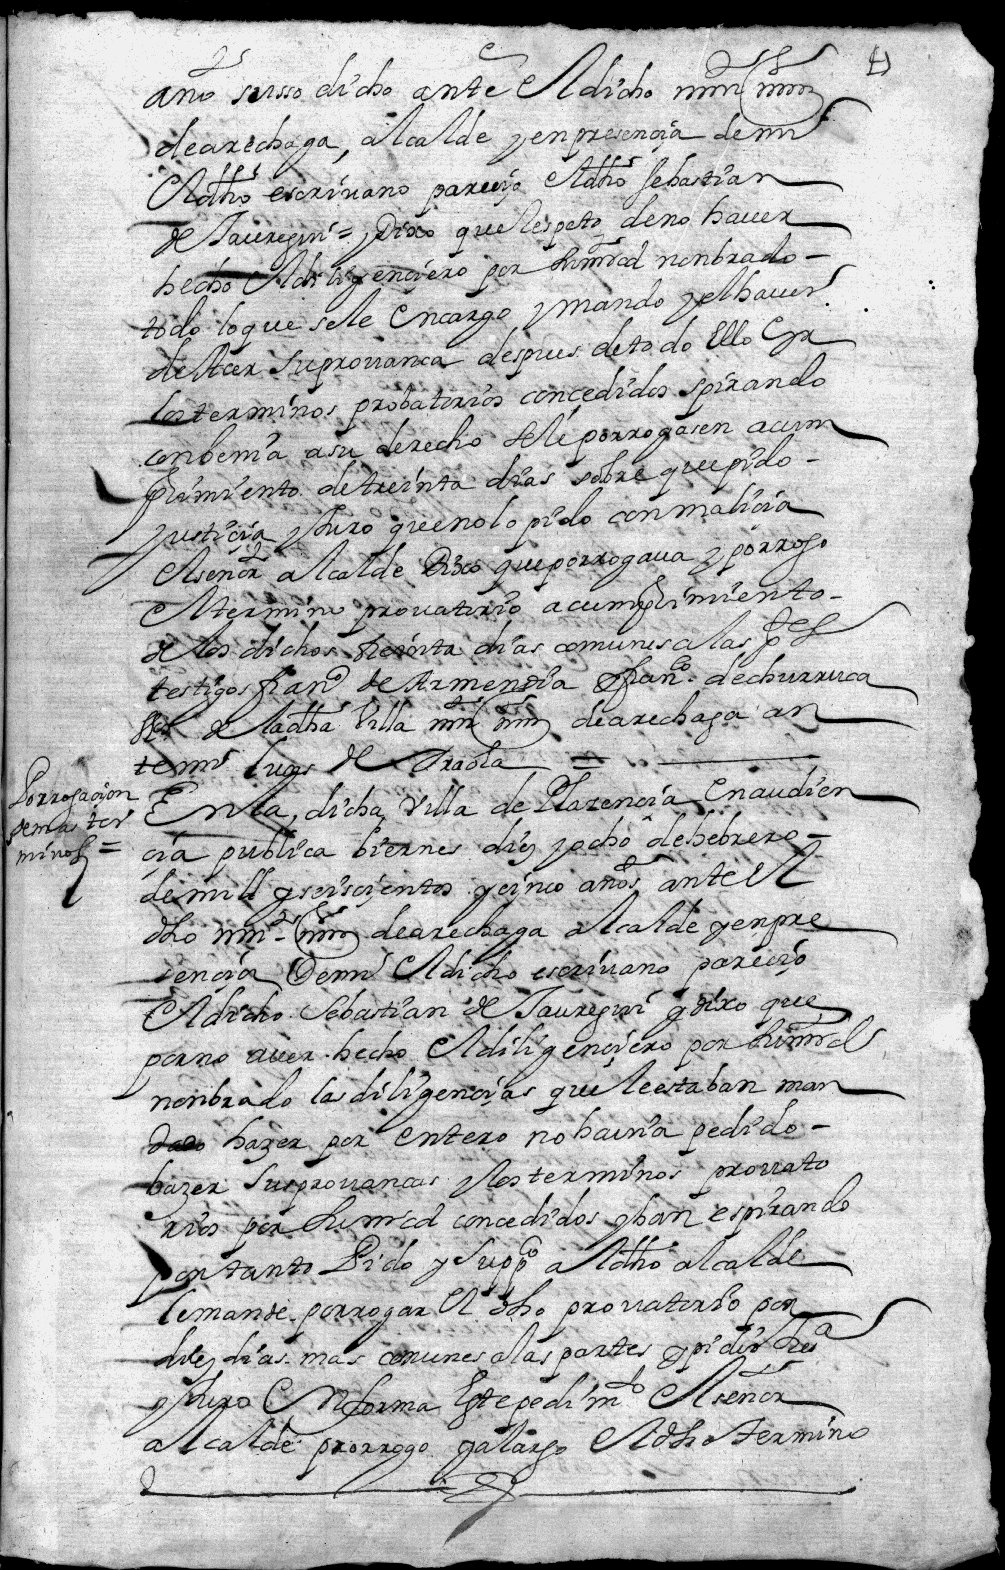 año susso dicho ante El dicho mrn mrnz
de arechaga, alcalde y en presencia de mi
El dho escriuano parecio El dho sebastian
de Jauregui = y Dixo que Respeto de no hauer
hecho El diligenciero por su mrcd nonbrado -
todo lo que se le encargo y mando y el hauer
de hacer su prouanca despues de todo Ello E yr
los terminos probatorios concedidos spirando
conbenia a su derecho se le porrogasen a cum
plimiento de treinta dias sobre que pido -
justicia y Juro que no lo pido con malicia
El señor alcalde Dixo que porrogaua y porrogo
El termino prouatorio a cumplimiento -
de los dichos treinta dias comunes a las ptes
testigos Franco de Armendia y Franco de churruca
de la dha Villa mrn mrnz de arechaga an
te mi lucas de
Porrogacion
de mas ter
minos =
En la dicha Villa de Plazencia En audien
cia publica biernes diez y ocho de hebrero -
de mill y seiscientos y cinco años ante El
dho mrn mrnz de arechaga alcalde y en pre
sencia De mi El dicho escriuano parecio
El dicho Sebastian de Jauregui y dixo que
por no auer hecho El diligenciero por su mrcd
nonbrado las diligencias que le estaban man
dado hazer por entero no hauia pedido -
hazer sus prouancas y los terminos prouato
rios por su mrcd concedidos y han espirando
por tanto Pido y suppco al dho alcalde
le mande porrogar El dho prouatorio por
diez dias mas comunes a las partes y pidio Justa
y Juro En forma Este pedimto El señor
alcalde prorrogo y alargo El dho termino